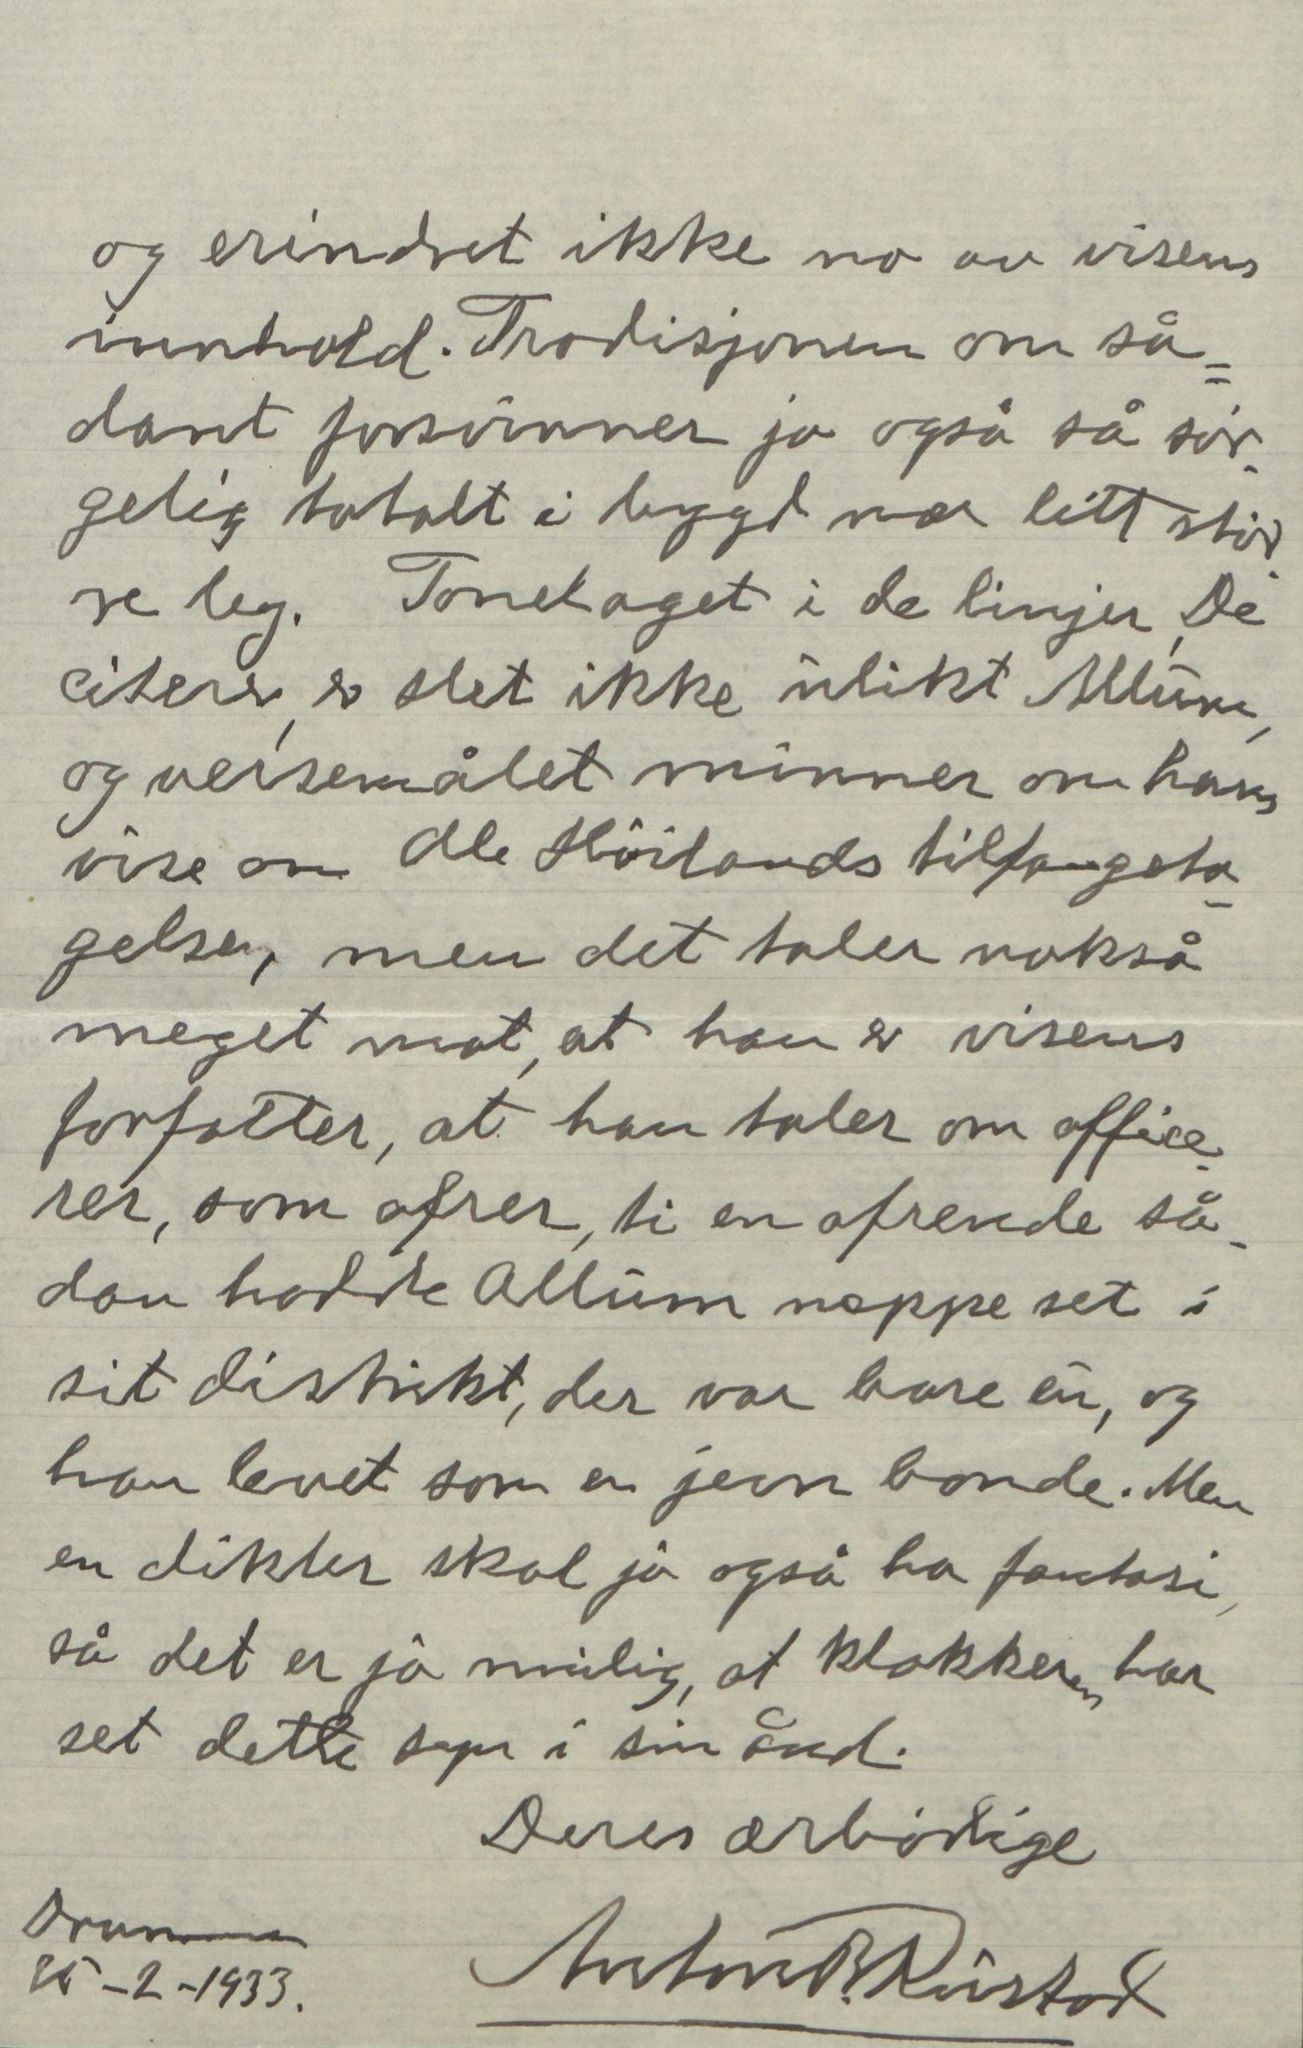 og erindret ikke no av visens
innhold. Tradisjonen om så=
dant forsvinner jo også så sør-
gelig totalt i bygd nær litt stør
re leg. Tonelaget i de linjer, De
citerer, er slet ikke ulikt Allum,
og versemålet minner om hans
vise om Ole Høilands tilfangeta-
gelse, men det taler nokså
meget mot, at han er visens
forfatter, at han taler om office-
rer, som ofrer, ti en ofrende så-
dan hadde Allum neppe set i
sit distrikt, der var bare én, og
han levet som en jevn bonde. Men
en dikter skal jo også ha fantasi,
så det er jo mulig, at klokkeren har
set dette syn i sin ånd.
Deres ærbødige
Drammen
25-2-1933.
Anton B. Rustad